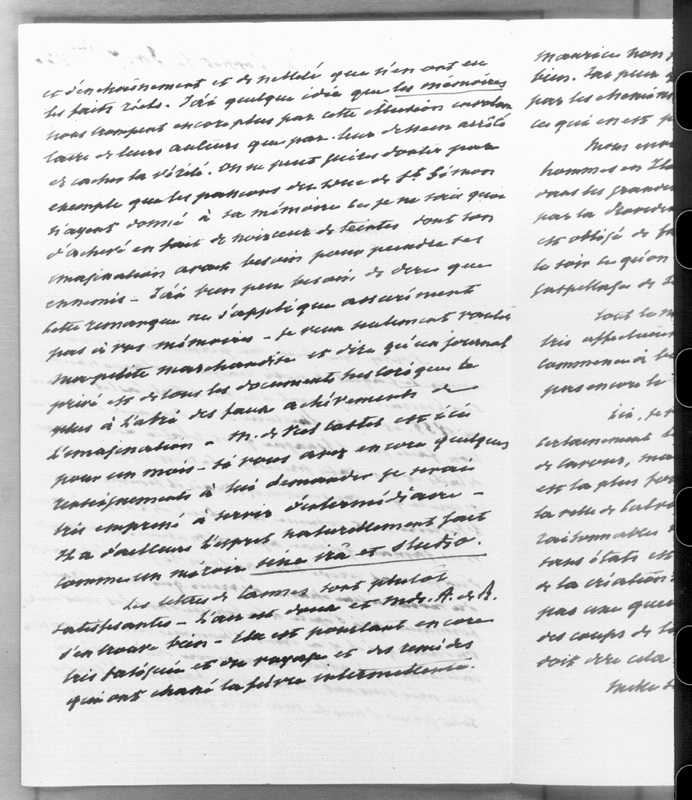 et d'enchaînement et de netteté que n'en ont eu
les faits réels. J'ai quelque idée que les mémoires
nous trompent encore plus par cette illusion involon
taire de leurs auteurs que par leur dessein arrêté
de cacher la vérité. On ne peut guères douter par
exemple que les passions du Duc de St. Simon
n'ayent donné à sa mémoire les je ne sais quoi
d'achevé en fait de noirceur de teintes dont son
imagination avait besoin pour peindre ses
ennemis – J'ai bien peu besoin de dire que
cette remarque ne s'applique assurément
pas à vos mémoires – je veux seulement
ma petite marchandise et dire qu'un journal
privé est de tous les documents historiques le
plus à l'abri des faux achèvements de
l'imagination. M. de est ici
pour un mois – si vous avez encore quelques
renseignements à lui demander je serais
très empressé à servir d'intermédiaire –
Il a d'ailleurs l'esprit naturellement fait
comme un miroir sine irâ et studio.
Les lettres de Cannes sont plutôt
satisfesantes – L'air est doux et Mde. A. de R.
s'en trouve bien – Elle est pourtant encore
très fatiguée et du voyage et des remèdes
qui ont chassé la fièvre intermittente.
Maurice non
bien.
par les chemins
ce qui en est
Nous
hommes en
dans les grandes
par la
est obligé de
le soir
Tout le
très
commence à
pas encore le
Ici, je
certainement
de Cavour, ma
est la plus
la
raisonnables
sans états est
de la création
pas une
des coups de
doit dire cela